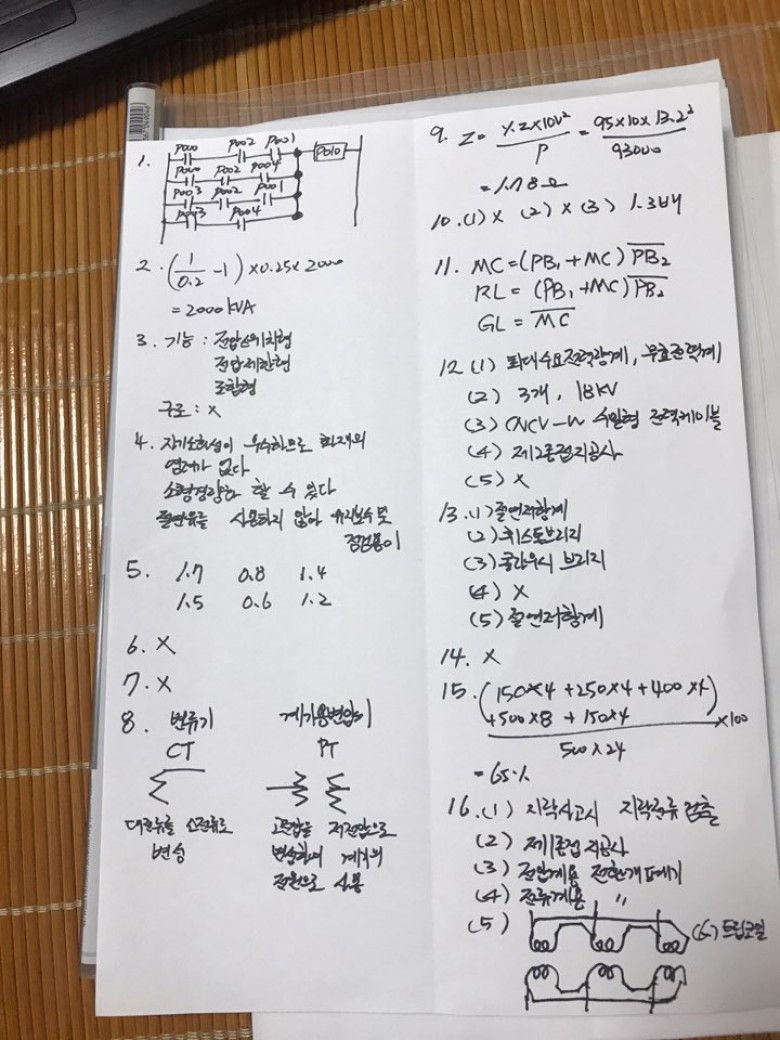 1.
P000 P002 P001
P010
P000 P002 P004
P003 P002 P001
P003 P004
2. (1/0.2 - 1) × 0.25 × 2000
= 2000 kVA
3. 기능 : 전압스위치형
전압제한형
조합형
구조 : X
4. 자기소화성이 우수하므로 화재의
염려가 없다
소형경량화 할 수 있다
절연유를 사용하지 않아 유지보수 및
점검용이
5. 1.7 0.8 1.4
1.5 0.6 1.2
6. X
7. X
8. 변류기 계기용변압기
CT PT
대전류를 소전류로
변성
고전압을 저전압으로
변성하여 계기의
전원으로 사용
9. Z = %Z×10V²/P = 95×10×13.2²/93000
= 1.78Ω
10. (1) X (2) X (3) 1.3배
11. MC = (PB₁ + MC) P̅B̅₂
RL = (PB₁ + MC) P̅B̅₂
GL = M̅C̅
12. (1) 최대수요전력량계, 무효전력계
(2) 3개, 18KV
(3) CNCV-W 수밀형 전력케이블
(4) 제2종접지공사
(5) X
13. (1) 절연저항계
(2) 휘스톤브리지
(3) 콜라우시 브리지
(4) X
(5) 절연저항계
14. X
15. (150×4 + 250×4 + 400×4
+500×8 + 150×4) ×100
500×24
= 65%
16. (1) 지락사고시 지락전류 검출
(2) 제1종접지공사
(3) 전압계용 전환개폐기
(4) 전류계용 〃
(5)
(6) 트립코일